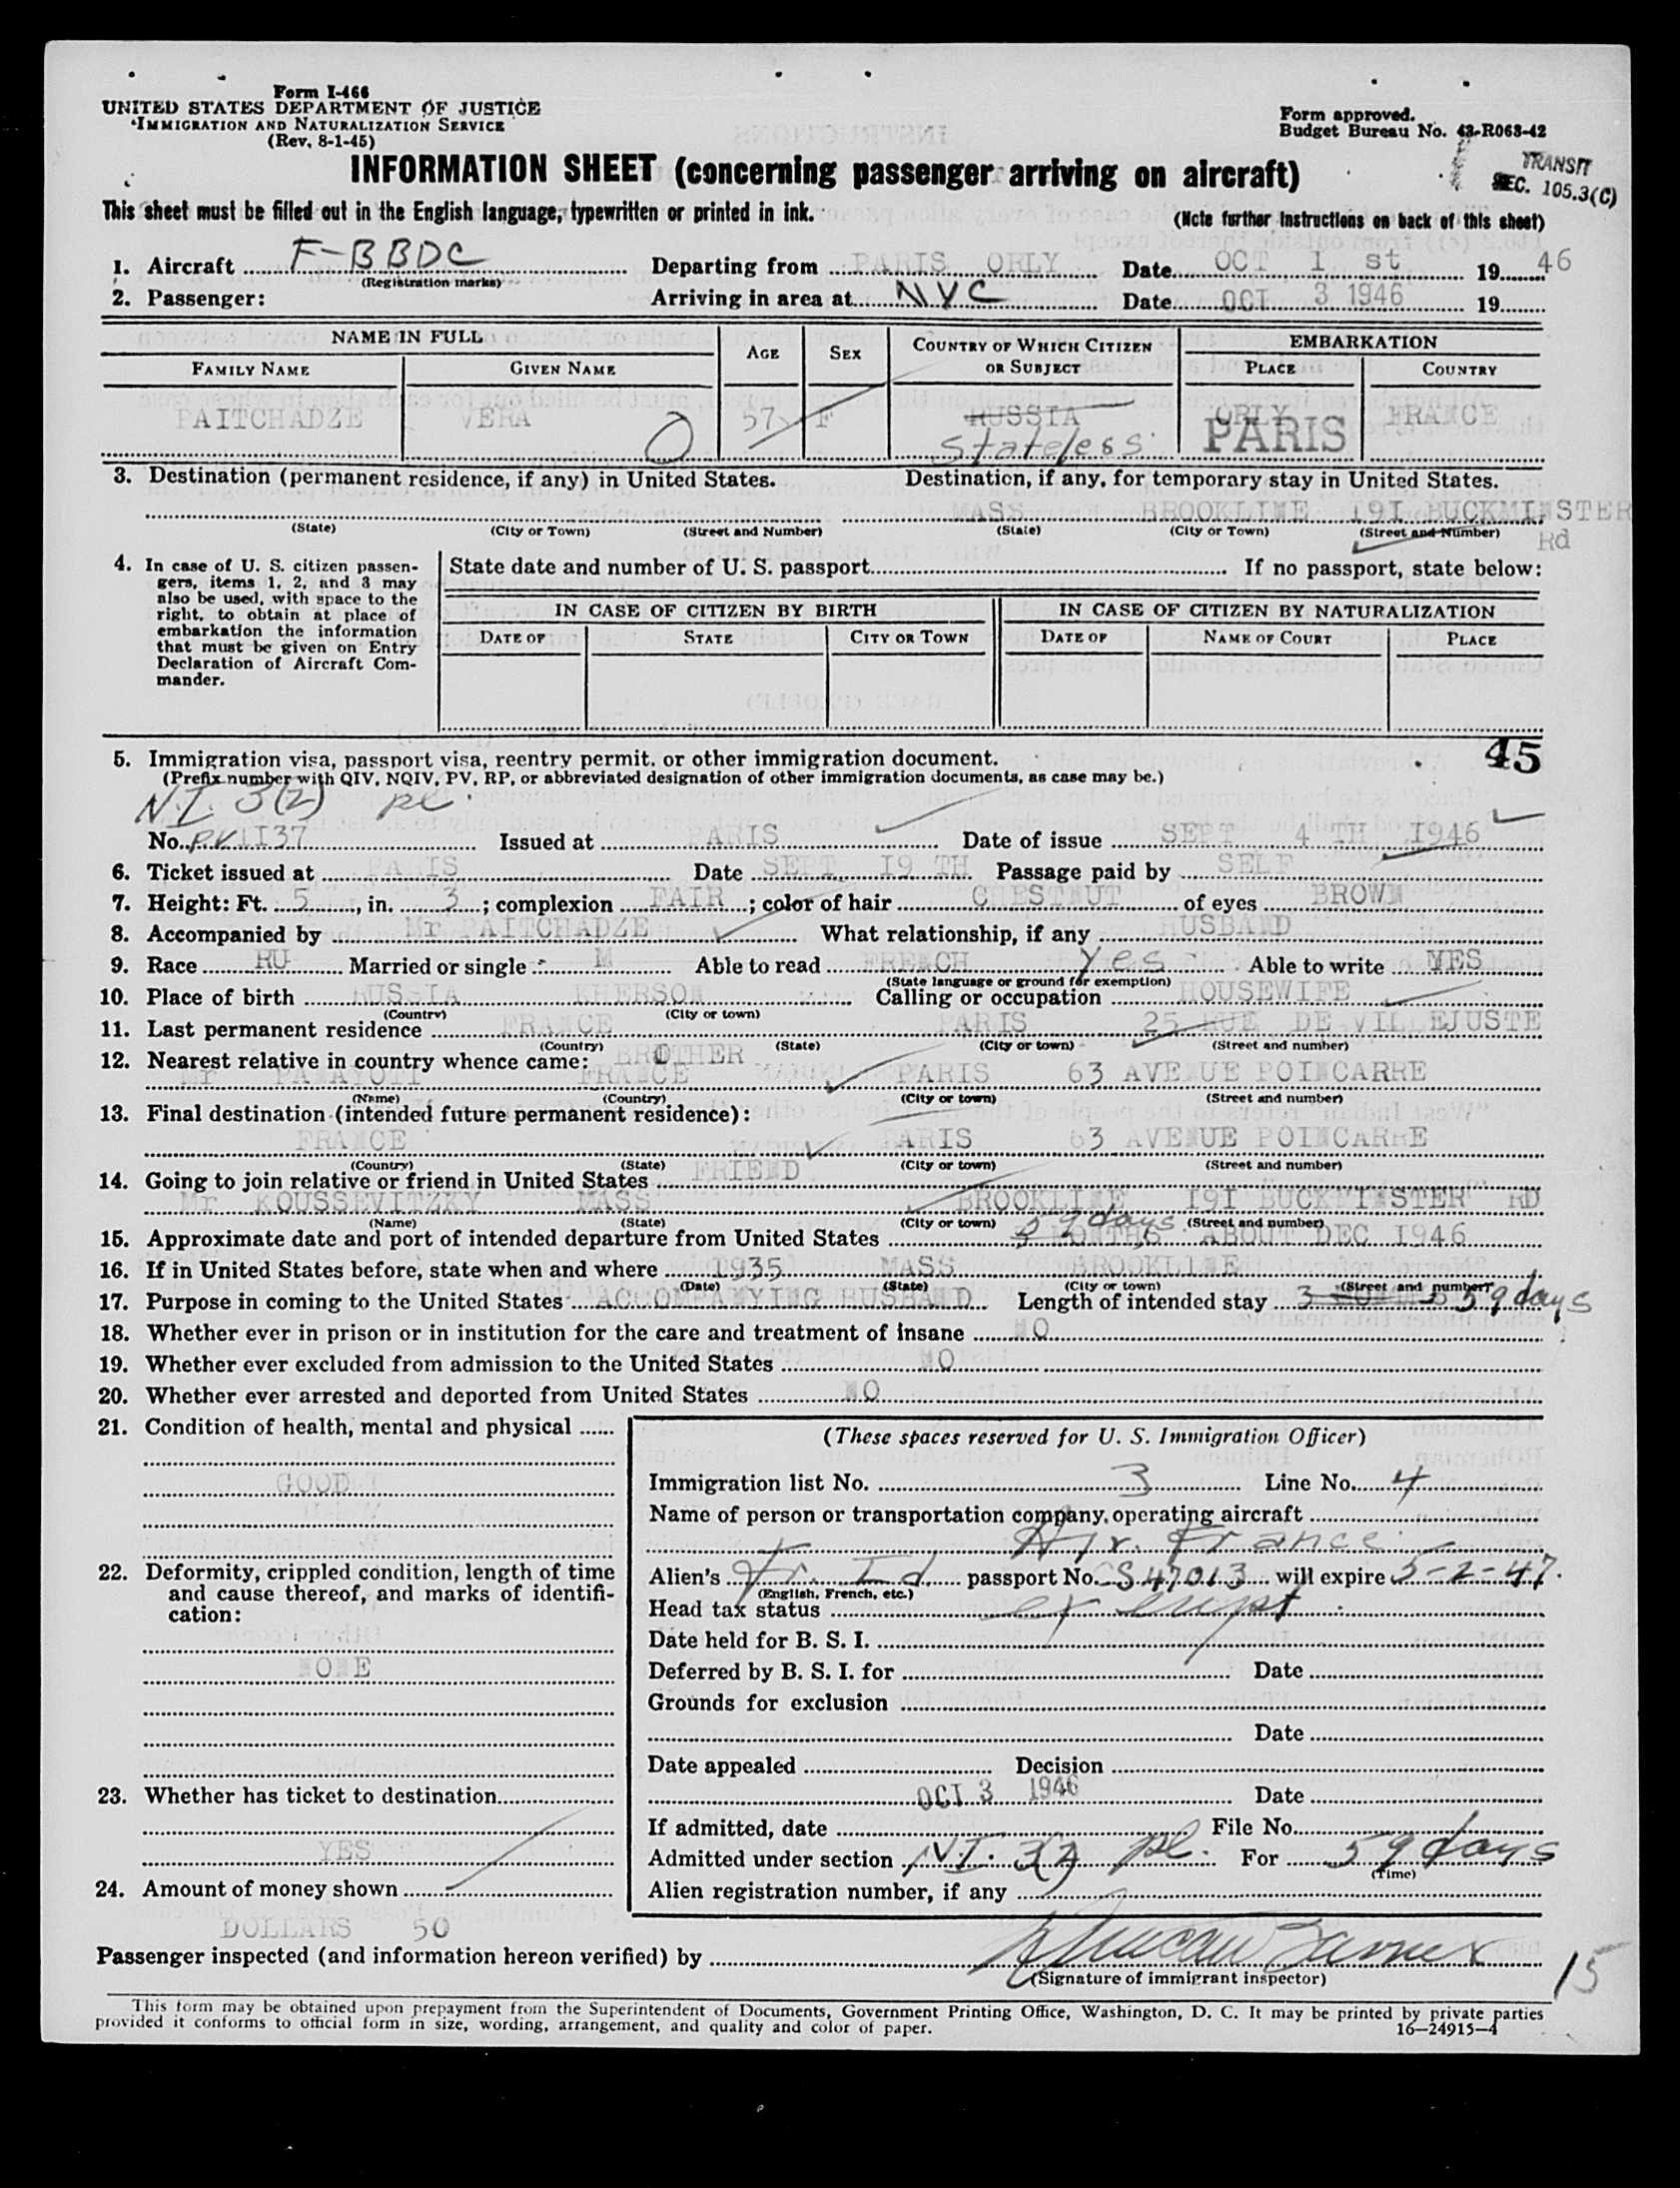 Form I-466
UNITED STATES DEPARTMENT OF JUSTICE
IMMIGRATION AND NATURALIZATION SERVICE
(Rev. 8-1-45)
Form approved.
Budget Bureau No. 43-R063-42
TRANSIT
SEC. 105.3(C)
INFORMATION SHEET (concerning passenger arriving on aircraft)
This sheet must be filled out in the English language, typewritten or printed in ink.
(Note further instructions on back of this sheet)
1. Aircraft F-BBDC Departing from PARIS ORLY Date OCT 1 st 1946
(Registration marks)
2. Passenger: Arriving in area at NYC Date OCT 3 1946 19
NAME IN FULL AGE SEX COUNTRY OF WHICH CITIZEN OR SUBJECT EMBARKATION
FAMILY NAME GIVEN NAME PLACE COUNTRY
PAITCHADZE VERA 57 F RUSSIA ORLY FRANCE
Stateless PARIS
3. Destination (permanent residence, if any) in United States. Destination, if any, for temporary stay in United States.
MASS BROOKLINE 191 BUCKMINSTER Rd
(State) (City or Town) (Street and Number) (State) (City or Town) (Street and Number)
4. In case of U. S. citizen passengers, items 1, 2, and 3 may also be used, with space to the right, to obtain at place of embarkation the information that must be given on Entry Declaration of Aircraft Commander.
State date and number of U. S. passport If no passport, state below:
IN CASE OF CITIZEN BY BIRTH IN CASE OF CITIZEN BY NATURALIZATION
DATE OF STATE CITY OR TOWN DATE OF NAME OF COURT PLACE
45
5. Immigration visa, passport visa, reentry permit, or other immigration document.
(Prefix number with QIV, NQIV, PV, RP, or abbreviated designation of other immigration documents, as case may be.)
N.I. 3(2) pl.
No. PV 1137 Issued at PARIS Date of issue SEPT 4 TH 1946
6. Ticket issued at PARIS Date SEPT. 19 TH Passage paid by SELF
7. Height: Ft. 5, in. 3; complexion FAIR; color of hair CHESTNUT of eyes BROWN
8. Accompanied by Mr PAITCHADZE What relationship, if any HUSBAND
9. Race RU Married or single M Able to read FRENCH Yes Able to write YES
(State language or ground for exemption)
10. Place of birth RUSSIA KHERSON Calling or occupation HOUSEWIFE
(Country) (City or town)
11. Last permanent residence FRANCE PARIS 25 RUE DE VILLEJUSTE
(Country) (State) (City or town) (Street and number)
12. Nearest relative in country whence came: BROTHER
Mr PANAYOTI FRANCE PARIS 63 AVENUE POINCARRE
(Name) (Country) (City or town) (Street and number)
13. Final destination (intended future permanent residence):
FRANCE PARIS 63 AVENUE POINCARRE
(Country) (State) (City or town) (Street and number)
14. Going to join relative or friend in United States FRIEND
Mr. KOUSSEVITZKY MASS BROOKLINE 191 BUCKMINSTER RD
(Name) (State) (City or town) (Street and number)
59 days
15. Approximate date and port of intended departure from United States 3 MONTHS ABOUT DEC 1946
16. If in United States before, state when and where 1935 MASS BROOKLINE
(Date) (State) (City or town) (Street and number)
17. Purpose in coming to the United States ACCOMPANYING HUSBAND Length of intended stay 3 MONTHS 59 days
18. Whether ever in prison or in institution for the care and treatment of insane NO
19. Whether ever excluded from admission to the United States NO
20. Whether ever arrested and deported from United States NO
21. Condition of health, mental and physical
GOOD
22. Deformity, crippled condition, length of time and cause thereof, and marks of identification:
NONE
23. Whether has ticket to destination
YES
24. Amount of money shown
DOLLARS 50
(These spaces reserved for U. S. Immigration Officer)
Immigration list No. 3 Line No. 4
Name of person or transportation company operating aircraft
Air France
Alien's Fr. Id passport No. S47013 will expire 5-2-47.
(English, French, etc.)
Head tax status exempt
Date held for B. S. I.
Deferred by B. S. I. for Date
Grounds for exclusion
Date
Date appealed Decision
OCT 3 1946 Date
If admitted, date File No.
Admitted under section N.I. 3(2) pl. For 59 days
(Time)
Alien registration number, if any
Passenger inspected (and information hereon verified) by
(Signature of immigrant inspector)
15
This form may be obtained upon prepayment from the Superintendent of Documents, Government Printing Office, Washington, D. C. It may be printed by private parties
provided it conforms to official form in size, wording, arrangement, and quality and color of paper.
16—24915-4